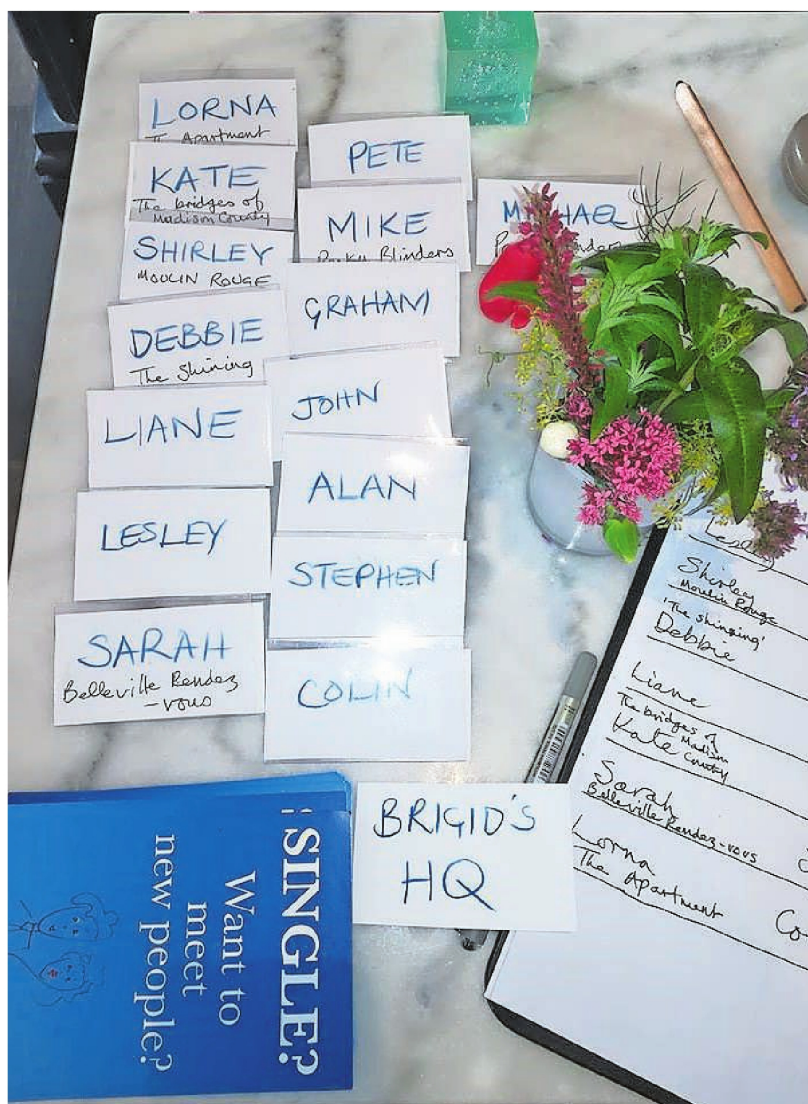 LORNA
The Apartment
KATE
The bridges of
Madison County
SHIRLEY
MOULIN ROUGE
DEBBIE
The Shining
LIANE
LESLEY
SARAH
Belleville Rendez
-vous
PETE
MIKE
Peaky Blinders
GRAHAM
JOHN
ALAN
STEPHEN
COLIN
MICHAEL
BRIGID'S
HQ
SINGLE?
Want to
meet
new people?
Lesley
Shirley
Moulin Rouge
'The shinging'
Debbie
Liane
The bridges of
Madison
County
Kate
Sarah
Belleville Rendez-vous
Lorna
The Apartment
Co